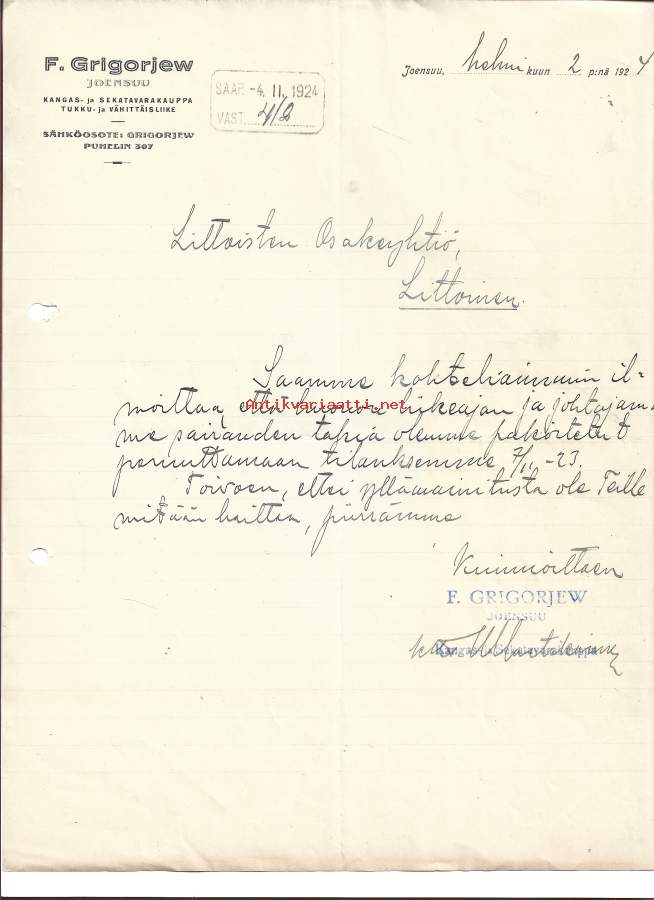 F. Grigorjew
JOENSUU
KANGAS- ja SEKATAVARAKAUPPA
TUKKU- ja VÄHITTÄISLIIKE
SÄHKÖOSOTE: GRIGORJEW
PUHELIN 307
SAAP. -4. II. 1924
VAST. 4/2
Joensuu, helmi kuun 2 p:nä 1924
Littoisten Osakeyhtiö,
Littoinen.
Saamme kohteliaimmin il=
moittaa, että huonon liikeajan ja johtajam=
me sairauden takia olemme pakoitetut
peruuttamaan tilauksemme 7/11 -23.
Toivoen, ettei ylläamainitusta ole Teille
mitään haittaa, piirrämme
Antikvariaatti.net
Kunnioittaen
F. GRIGORJEW
JOENSUU
Kangas- ja Sekatavarakauppa